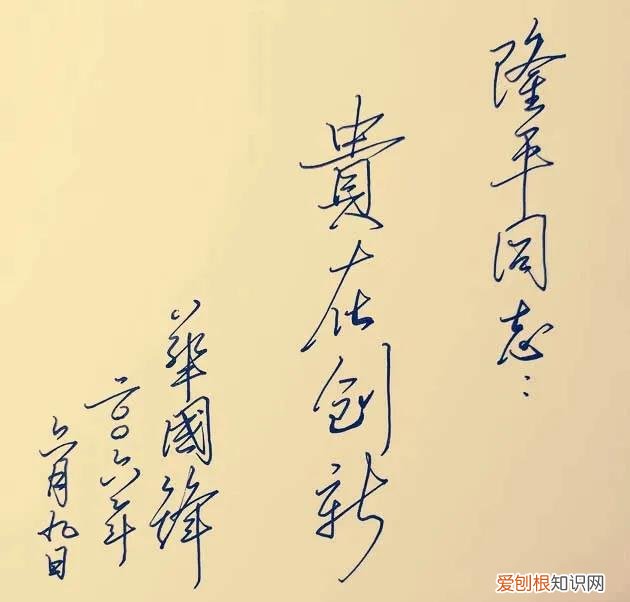 隆平同志：
貴在创新
華國鋒
二〇〇六年
六月九日
爱刨根知识网